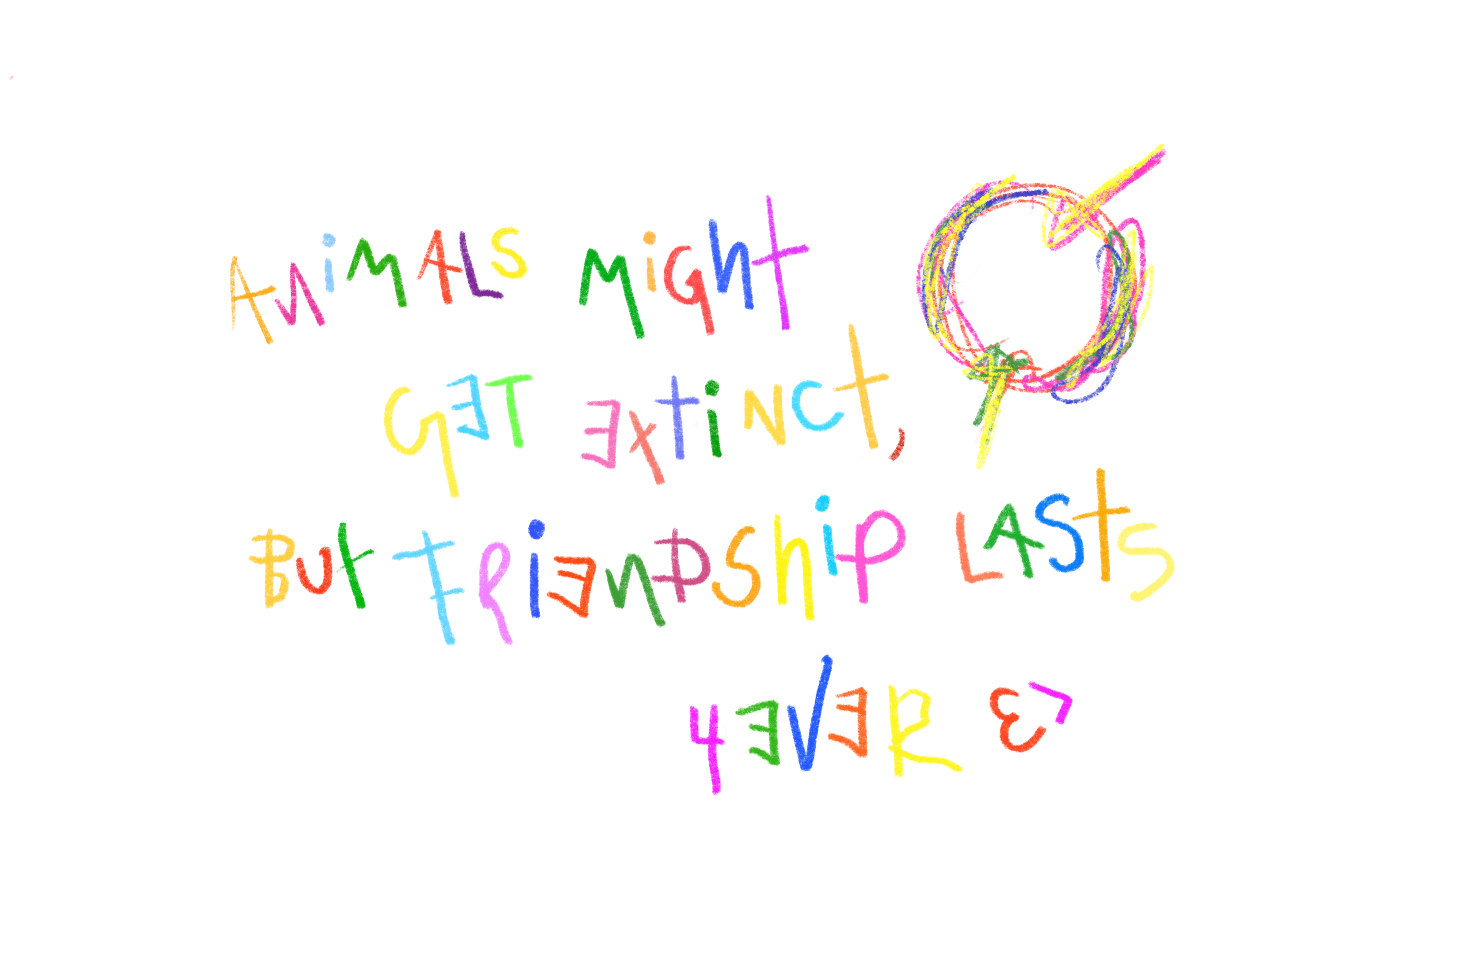 ANiMALS MiGht
GET EXtiNCt,
But FRiEnDShiP LASTS
4EVER <3